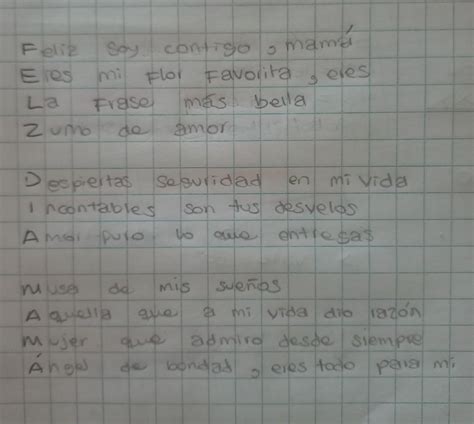 Feliz soy contigo, mamá
Eres mi Flor Favorita, eres
La Frase más bella
Zumo de amor
Despiertas seguridad en mi vida
Incontables son tus desvelos
Amor puro lo que entregas
Musa de mis sueños
Aquella que a mi vida dio razón
Mujer que admiro desde siempre
Ángel de bondad, eres todo para mi